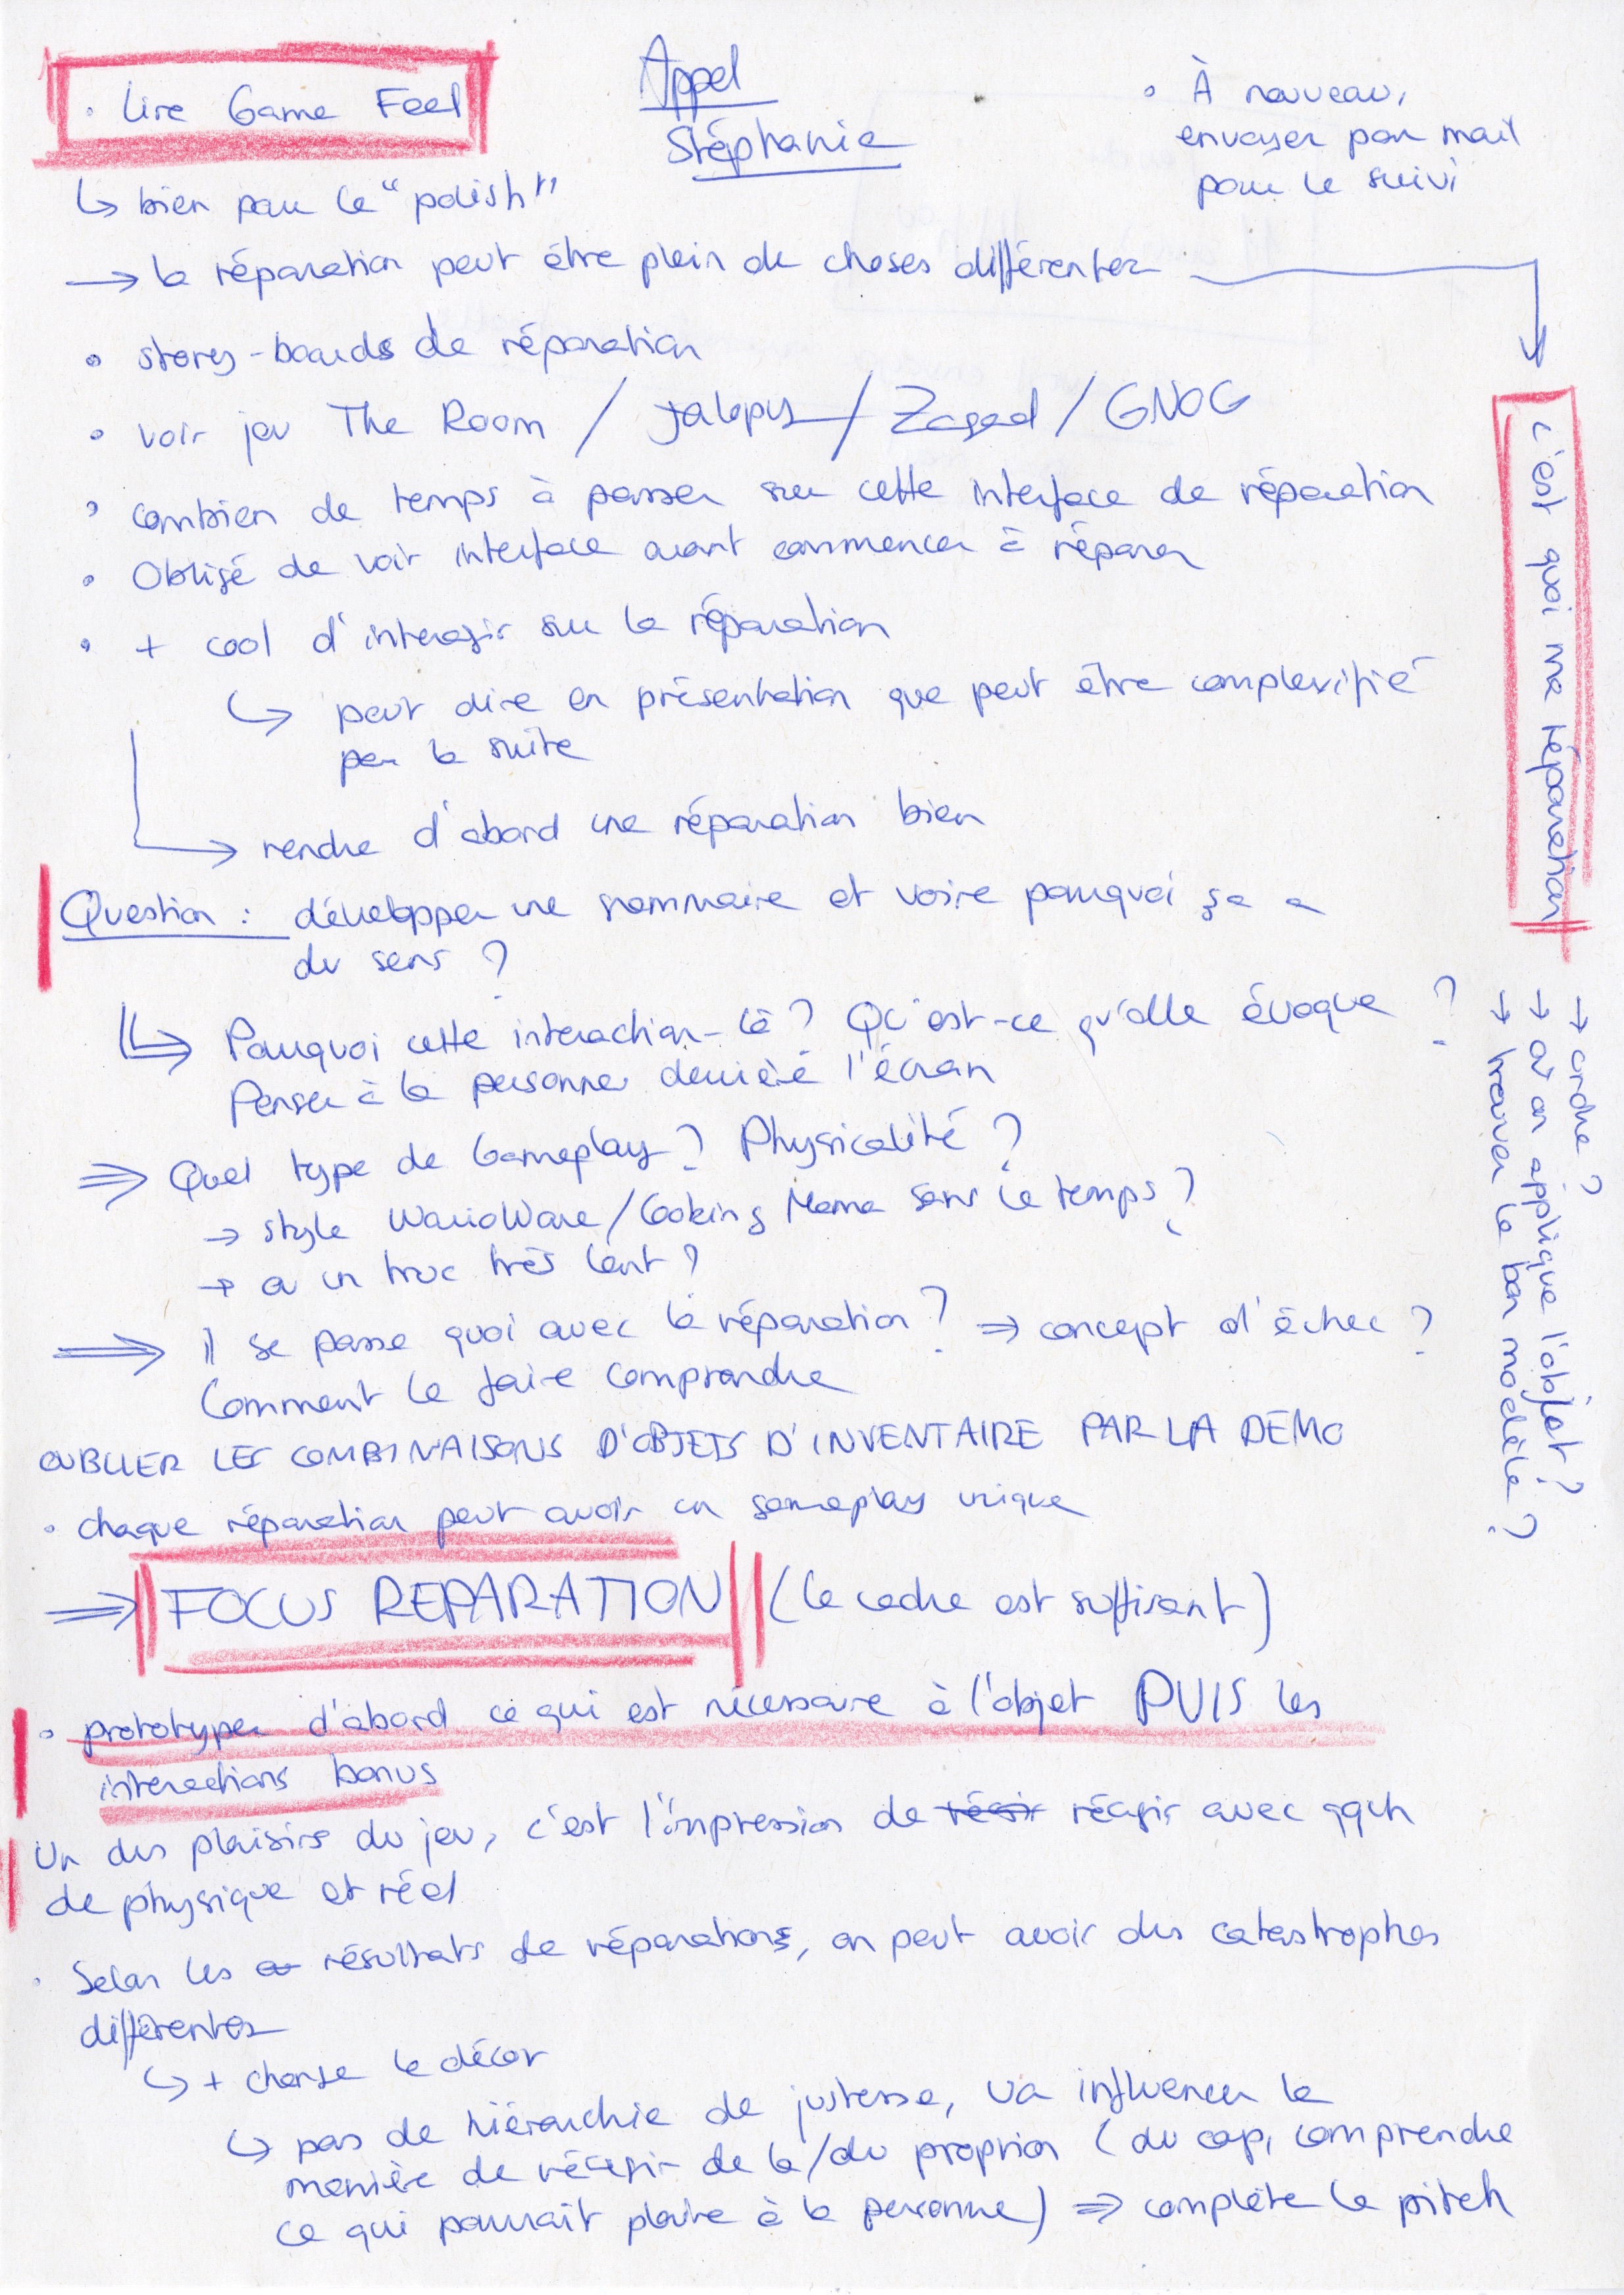 Appel
Stéphanie
• Lire Game Feel
↳ bien pour le "polish"
• À nouveau,
envoyer par mail
pour le suivi
→ la réparation peut être plein de choses différentes
c'est quoi ma réparation
→ ordre ?
→ où on applique l'objet ?
→ trouver le bon modèle ?
• story-boards de réparation
• voir jeu The Room / Jalopy / / GNOG
• combien de temps à passer sur cette interface de réparation
• Obligé de voir interface avant commencer à réparer
• + cool d'interagir sur la réparation
↳ peut dire en présentation que peut être complexifié
par la suite
→ rendre d'abord une réparation bien
Question : développer une grammaire et voire pourquoi ça a
du sens ?
↳ Pourquoi cette interaction-là ? Qu'est-ce qu'elle évoque ?
Penser à la personne derrière l'écran
⇒ Quel type de Gameplay ? Physicalité ?
→ style WarioWare/Cooking Mama sans le temps ?
→ ou un truc très lent ?
⇒ Il se passe quoi avec la réparation ? ⇒ concept d'échec ?
Comment le faire comprendre
OUBLIER LES COMBINAISONS D'OBJETS D'INVENTAIRE PAR LA DEMO
• chaque réparation peut avoir un gameplay unique
⇒ FOCUS REPARATION (le cadre est suffisant)
• prototyper d'abord ce qui est nécessaire à l'objet PUIS les
interactions bonus
Un des plaisirs du jeu, c'est l'impression de réagir avec qqch
de physique et réel
• Selon les résultats de réparations, on peut avoir des catastrophes
différentes
↳ + change le décor
↳ pas de hiérarchie de justesse, va influencer la
manière de réagir de la/du proprio (du coup, comprendre
ce qui pourrait plaire à la personne) ⇒ complète le pitch